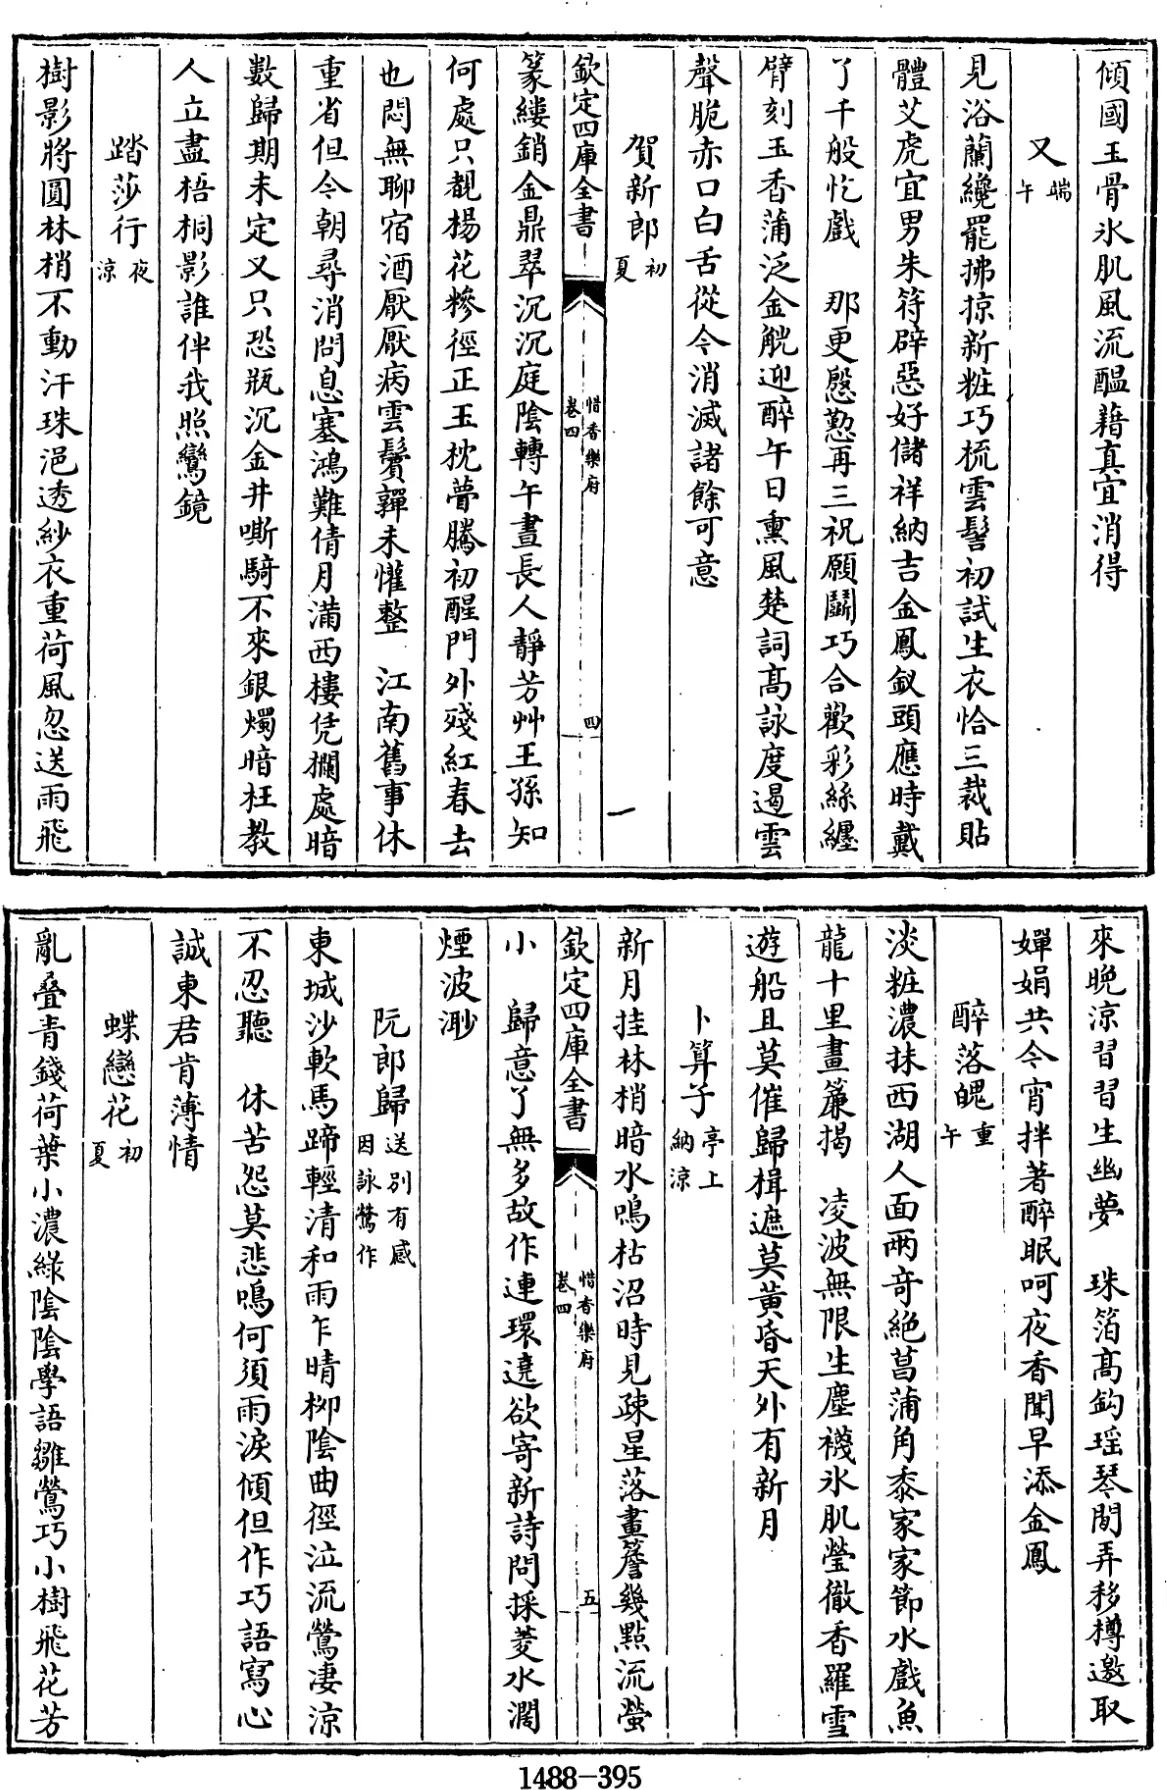 傾國玉骨氷肌風流醖藉真宜消得
又端午
見浴蘭纔罷拂掠新粧巧梳雲髻初試生衣恰三裁貼
體艾虎宜男朱符辟惡好儲祥納吉金鳳釵頭應時戴
了千般忔戲　那更慇懃再三祝願鬭巧合歡彩絲纒
臂刻玉香蒲泛金觥迎醉午日熏風楚詞髙詠度遏雲
聲脆赤口白舌從今消滅諸餘可意
賀新郎初夏
欽定四庫全書
惜香樂府
卷四
四
篆縷銷金鼎翠沉沉庭陰轉午晝長人靜芳艸王孫知
何處只覩楊花糝徑正玉枕瞢騰初醒門外殘紅春去
也悶無聊宿酒厭厭病雲鬢嚲未懽整　江南舊事休
重省但今朝尋消問息塞鴻難倩月滿西樓凭欄處暗
數歸期未定又只恐瓶沉金井嘶騎不來銀燭暗枉教
人立盡梧桐影誰伴我照鸞鏡
踏莎行夜涼
樹影將圓林梢不動汗珠浥透紗衣重荷風忽送雨飛
來晚涼習習生幽夢　珠箔髙鈎瑶琴閒弄移樽邀取
嬋娟共今宵拌著醉眠呵夜香聞早添金鳳
醉落魄重午
淡粧濃抹西湖人面兩竒絶菖蒲角黍家家節水戲魚
龍十里畫簾揭　凌波無限生塵襪氷肌瑩徹香羅雪
遊船且莫催歸楫遮莫黄昏天外有新月
卜算子亭上納涼
新月挂林梢暗水鳴枯沼時見疎星落畫簷幾點流螢
欽定四庫全書
惜香樂府
卷四
五
小　歸意了無多故作連環遶欲寄新詩問採菱水濶
煙波渺
阮郎歸送別有感因詠鶯作
東城沙軟馬蹄輕清和雨乍晴栁陰曲徑泣流鶯凄涼
不忍聽　休苦怨莫悲鳴何須雨淚傾但作巧語寫心
誠東君肯薄情
蝶戀花初夏
亂疊青錢荷葉小濃緑陰陰學語雛鶯巧小樹飛花芳
1488-395